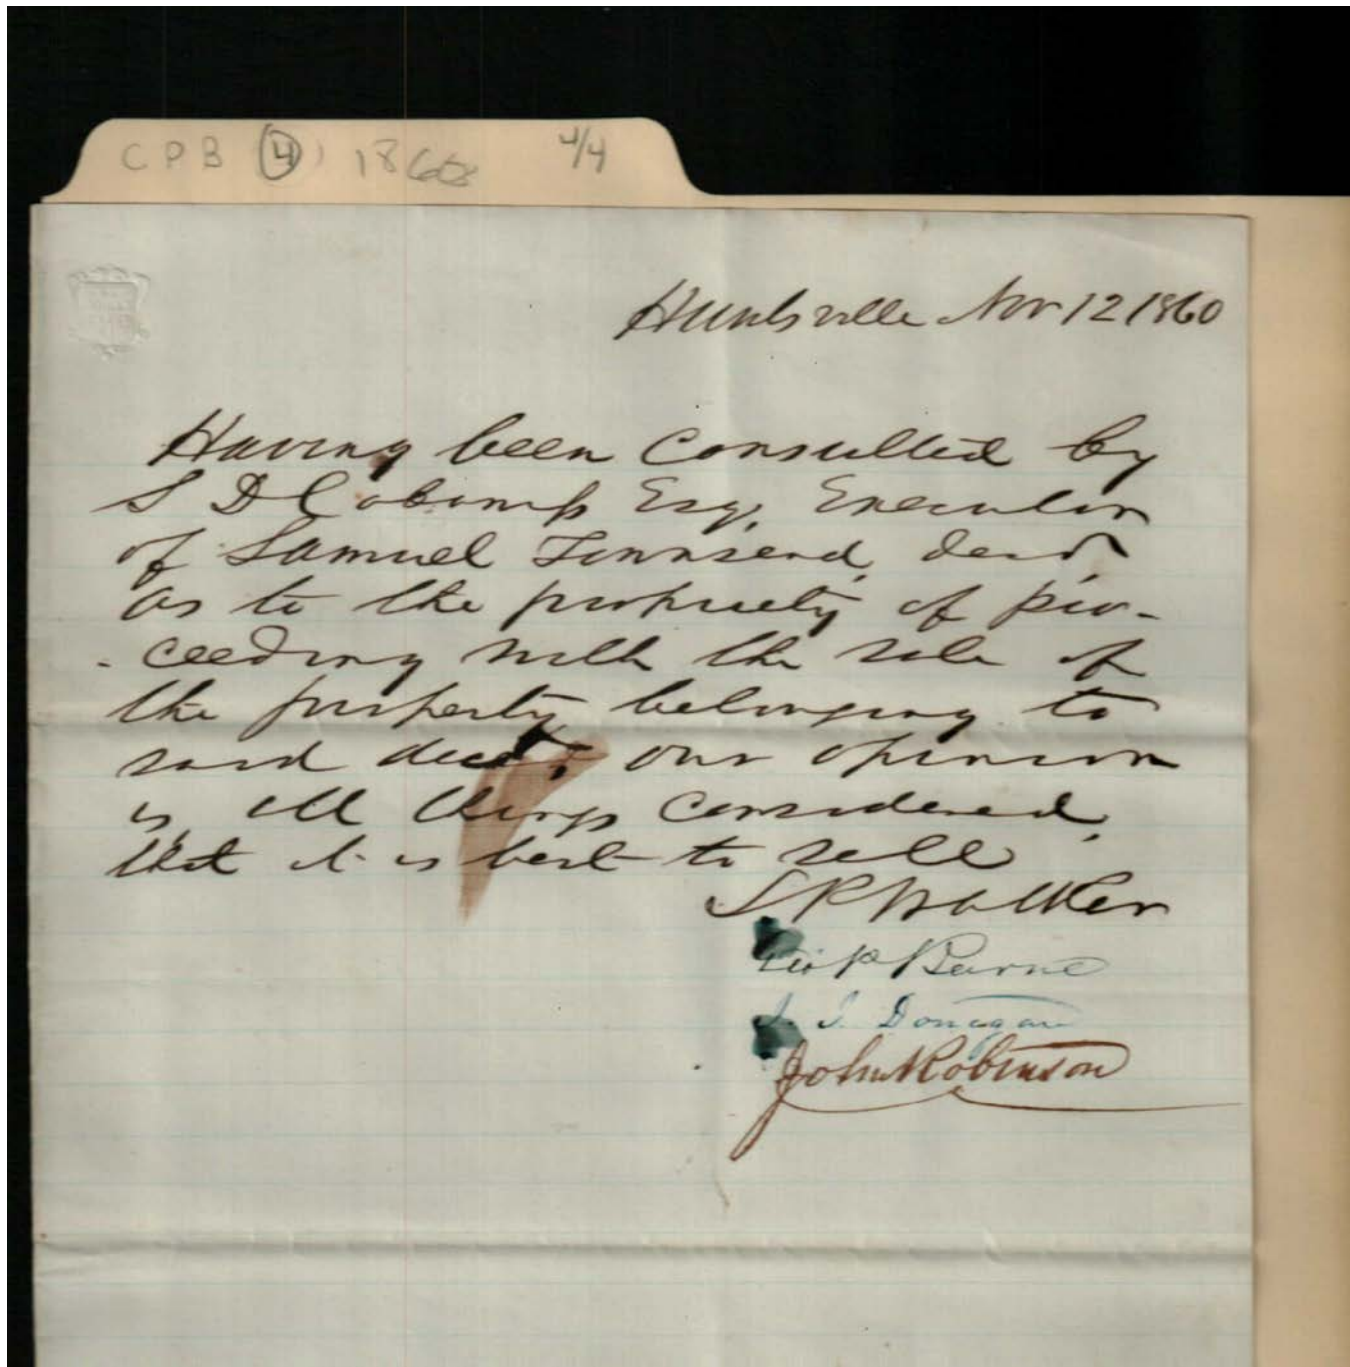 CPB 4 1860s 4/4
Huntsville Nov 12 1860
Having been consulted by
S D Cabaniss Esq, Executor
of Samuel Townsend, decd,
as to the propriety of pro-
-ceeding with the sale of
the property belonging to
said decd, our opinion
is, all things considered,
that it is best to sell
L P Walker
Geo P Beirne
J. J. Donegan
John Robinson